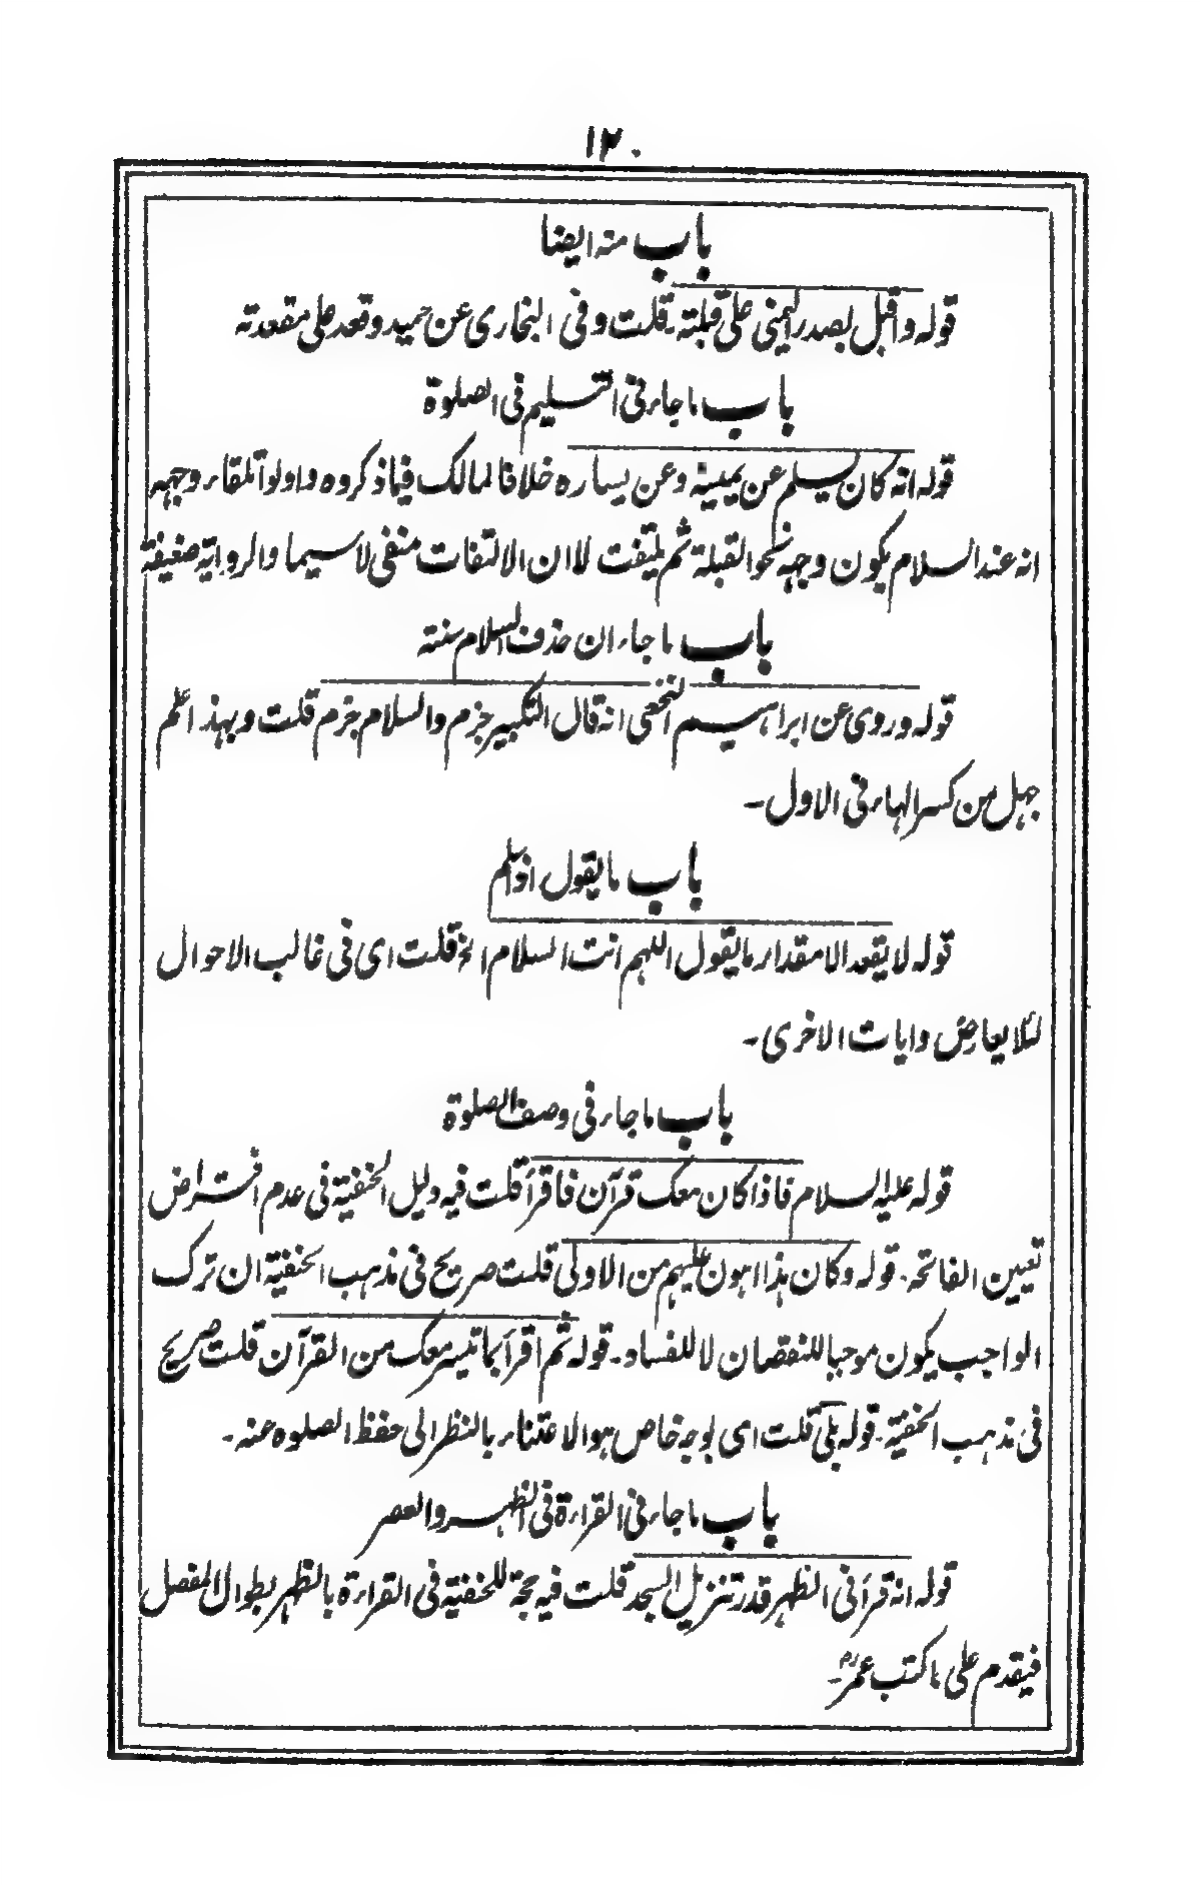 ١٢٠
باب منه ایضا
قوله واقبل بصدر الیمنی علی قبلته۔ قلت وفی البخاری عن حمید وقعد علی مقعدته
باب ما جاء فی التسلیم فی الصلوة
قوله انه کان یسلم عن یمینه وعن یساره خلافا لمالک فیما ذکروه واولوا تلقاء وجهه
انه عند السلام یکون وجهه نحو القبلة ثم یلتفت لا ان الالتفات منفی لا سیما والروایة ضعیفة
باب ما جاء ان حذف السلام سنته
قوله وروی عن ابراهیم النخعی انه قال التکبیر جزم والسلام جزم قلت وبهذا علم
جهل من کسر الهاء فی الاول۔
باب ما یقول اذا سلم
قوله لا یقعد الا مقدار ما یقول اللهم انت السلام الخ قلت ای فی غالب الاحوال
لئلا یعارض وایات الاخری۔
باب ما جاء فی وصف الصلوة
قوله علیه السلام فاذا کان معک قرآن فاقرأ قلت فیه دلیل الحنفیة فی عدم افتراض
تعیین الفاتحة۔ قوله وکان هذا اهون علیهم من الاولی قلت صریح فی مذهب الحنفیة ان ترک
الواجب یکون موجبا للنقصان لا للفساد۔ قوله ثم اقرأ بما تیسر معک من القرآن قلت صریح
فی مذهب الحنفیة۔ قوله بلی قلت ای لوجه خاص هو الاعتناء بالنظر الی حفظ الصلوه عنه۔
باب ما جاء فی القراءة فی الظهر والعصر
قوله انه قرأ فی الظهر قدر تنزیل السجد قلت فیه حجة للحنفیة فی القراءة بالظهر بطوال المفصل
فیقدم علی ما کتب عمرؓ۔